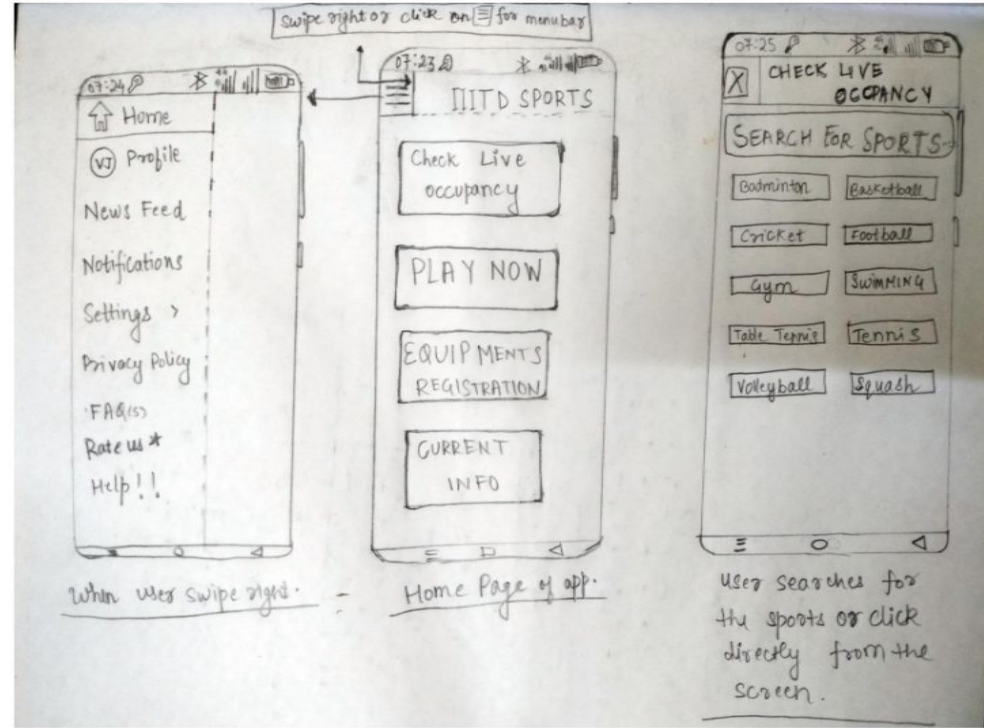 swipe right or click on for menubar
07:24
Home
VJ Profile
News Feed
Notifications
Settings >
Privacy Policy
FAQ(s)
Rate us *
Help!!
When user swipe right.
07:23
IIITD SPORTS
Check Live
occupancy
PLAY NOW
EQUIPMENTS
REGISTRATION
CURRENT
INFO
Home Page of app.
07:25
X
CHECK LIVE
OCCPANCY
SEARCH FOR SPORTS
Badminton
Basketball
Cricket
Football
Gym
SWIMMING
Table Tennis
Tennis
Volleyball
Squash
User searches for
the sports or click
directly from the
screen.